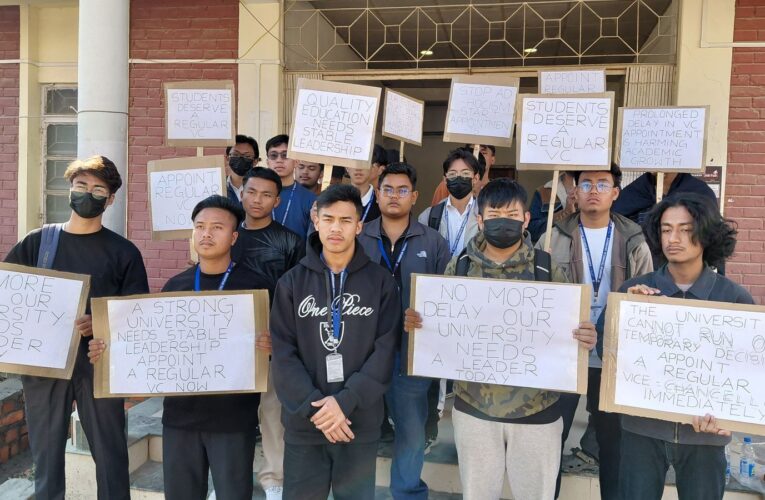 STUDENTS
DESERVE
A
REGULAR
VC
QUALITY
EDUCATION
NEEDS
STABLE
LEADERSHIP
STOP AD
HOCISM
START
APPOINTMENT
APPOINT
REGULAR
STUDENTS
DESERVE
A
REGULAR
VC
PROLONGED
DELAY IN VC
APPOINTMENT
IS HARMING
ACADEMIC
GROWTH
APPOINT
REGULAR
NOW
MORE
OUR
NEEDS
A STRONG
UNIVERSITY
NEEDS STABLE
LEADERSHIP
APPOINT
A REGULAR
VC NOW
One Piece
NO MORE
DELAY OUR
UNIVERSITY
NEEDS
A LEADER
TODAY
THE UNIVERSIT
CANNOT RUN O
TEMPORARY DECISI
APPOINT
A REGULAR
VICE-CHANCELL
IMMEDIATELY